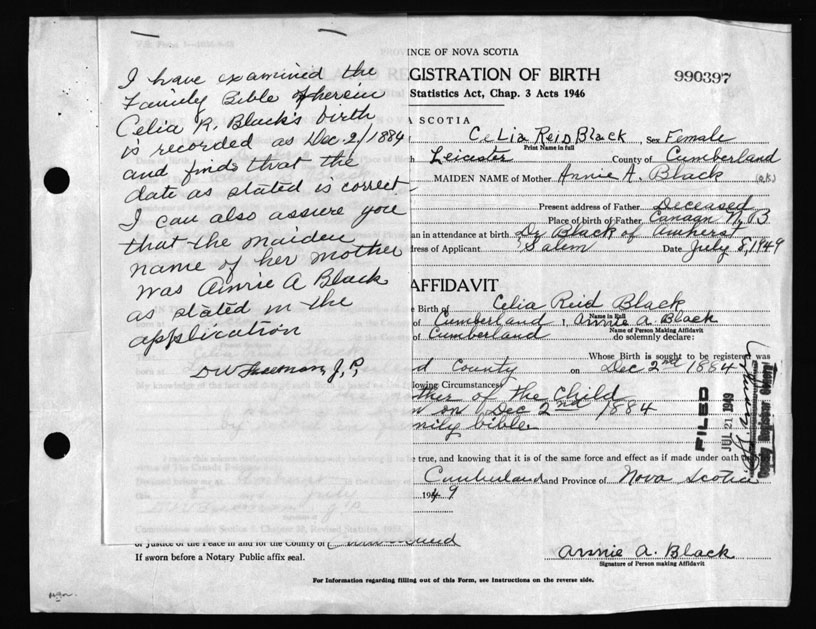 I have examined the
Family Bible wherein
Celia R. Black's birth
is recorded as Dec 2/1884
and finds that the
date as stated is correct
I can also assure you
that the maiden
name of her mother
was Annie A Black
as stated in the
application
D W Freeman, J.P,
INCE OF NOVA SCOTIA
GISTRATION OF BIRTH
990397
Statistics Act, Chap. 3 Acts 1946
A SCOTIA
CeLia Reid Black, Sex Female
Print Name in full
h Leicester County of Cumberland
MAIDEN NAME of Mother Annie A. Black
Present address of Father Deceased
Place of birth of Father Canaan N.B
an in attendance at birth Dr Black of Amherst
dress of Applicant Salem Date July 8, 1949
AFFIDAVIT
e Birth of Celia Reid Black
Name in Full
of Cumberland I, Annie A. Black
Name of Person Making Affidavit
of Cumberland do solemnly declare:
Whose Birth is sought to be registered was
d County on Dec 2nd 1884
lowing Circumstances
ther of the Child
n on Dec 2nd 1884
mily bible
FILED
JUL 21 1949
Registrar General
e true, and knowing that it is of the same force and effect as if made under oath
Cumberland and Province of Nova Scotia
1949
of Justice of the Peace in and for the County of Cumberland
If sworn before a Notary Public affix seal.
Annie A. Black
Signature of Person making Affidavit
For Information regarding filling out of this Form, see Instructions on the reverse side.